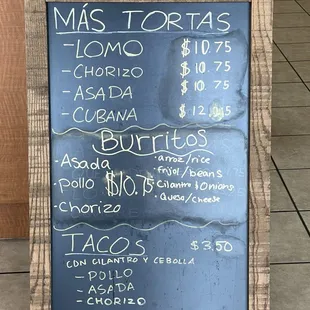 MÁS TORTAS
- LOMO $10.75
- CHORIZO $10.75
- ASADA $10.75
- CUBANA $
Burritos
· Asada · arroz/rice
· pollo $10.75 · frijol/beans
· Cilantro/Onions
· Chorizo · Queso/cheese
TACOS $3.50
CON CILANTRO Y CEBOLLA
- POLLO
- ASADA
- CHORIZO